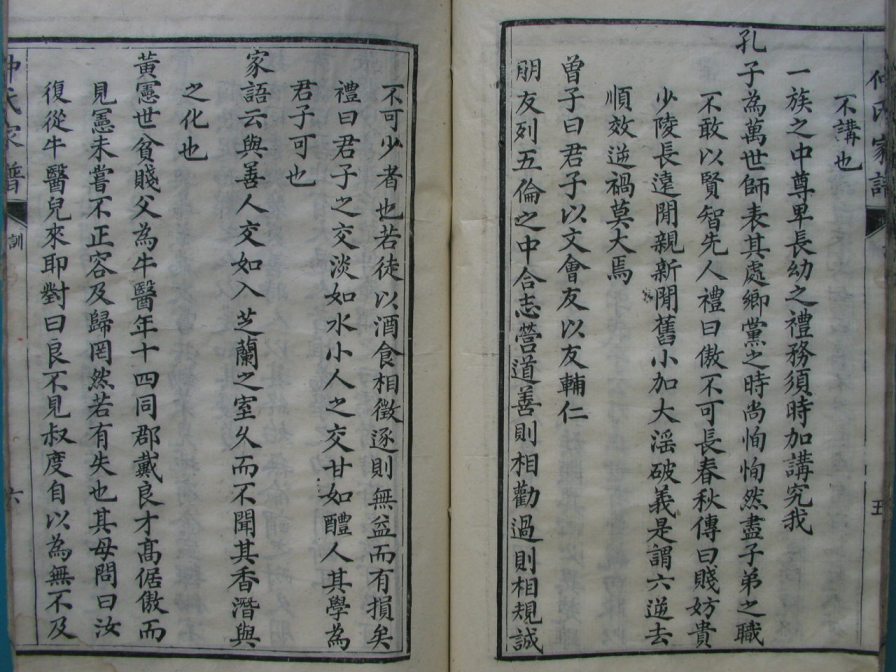 不講也
一族之中尊卑長幼之禮務須時加講究我
孔子為萬世師表其處鄉黨之時尚恂恂然盡子弟之職
不敢以賢智先人禮曰傲不可長春秋傳曰賤妨貴
少陵長遠閒親新閒舊小加大滛破義是謂六逆去
順效逆禍莫大焉
曾子曰君子以文會友以友輔仁
朋友列五倫之中合志營道善則相勸過則相規誠
五
不可少者也若徒以酒食相徵逐則無益而有損矣
禮曰君子之交淡如水小人之交甘如醴人其學為
君子可也
家語云與善人交如入芝蘭之室久而不聞其香潛與
之化也
黃憲世貧賤父為牛醫年十四同郡戴良才高倨傲而
見憲未嘗不正容及歸罔然若有失也其母問曰汝
復從牛醫兒來耶對曰良不見叔度自以為無不及
仲氏家譜
訓
六